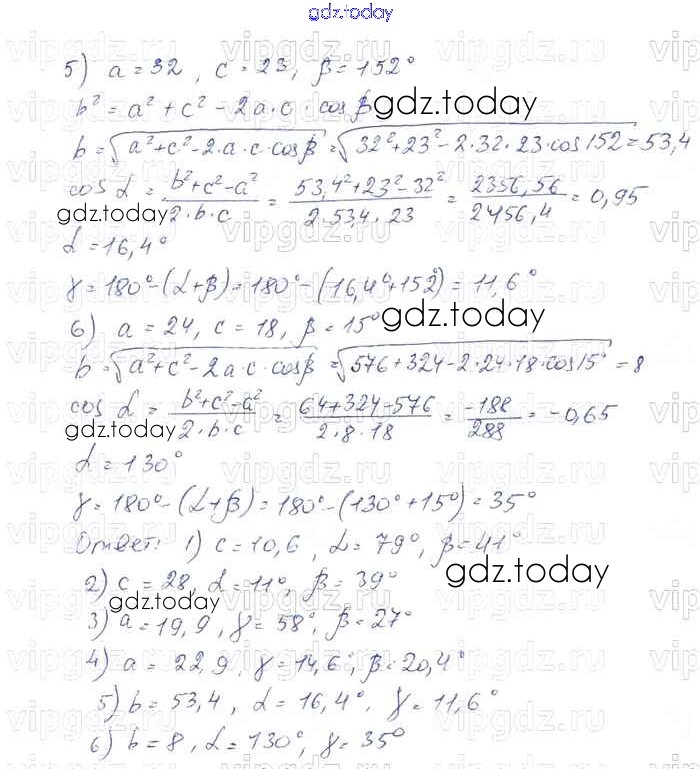 gdz.today
5) a = 32 , c = 23, β = 152°
b² = a² + c² - 2a·c · cos β
gdz.today
b = √(a² + c² - 2·a·c·cosβ) = √(32² + 23² - 2·32·23·cos152) = 53,4
cos α = (b² + c² - a²)/(2·b·c) = (53,4² + 23² - 32²)/(2·53,4·23) = 2356,56/2456,4 = 0,95
gdz.today
α = 16,4°
γ = 180° - (α + β) = 180° - (16,4° + 152°) = 11,6°
6) a = 24, c = 18, β = 15°
gdz.today
b = √(a² + c² - 2a·c·cosβ) = √(576 + 324 - 2·24·18·cos15°) = 8
cos α = (b² + c² - a²)/(2·b·c) = (64 + 324 - 576)/(2·8·18) = -188/288 = -0,65
gdz.today
α = 130°
γ = 180° - (α + β) = 180° - (130° + 15°) = 35°
Ответ: 1) c = 10,6 , α = 79°, β = 41°
2) c = 28, α = 11°, β = 39°
gdz.today
gdz.today
3) a = 19,9 , γ = 58°, β = 27°
4) a = 22,9, γ = 14,6°, β = 20,4°
5) b = 53,4 , α = 16,4°, γ = 11,6°
6) b = 8, α = 130°, γ = 35°
vipgdz.ru